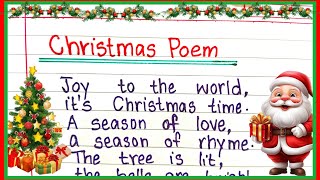 Christmas Poem
Joy to the world,
it's Christmas time.
A season of love,
a season of rhyme.
The tree is lit,
the bells are